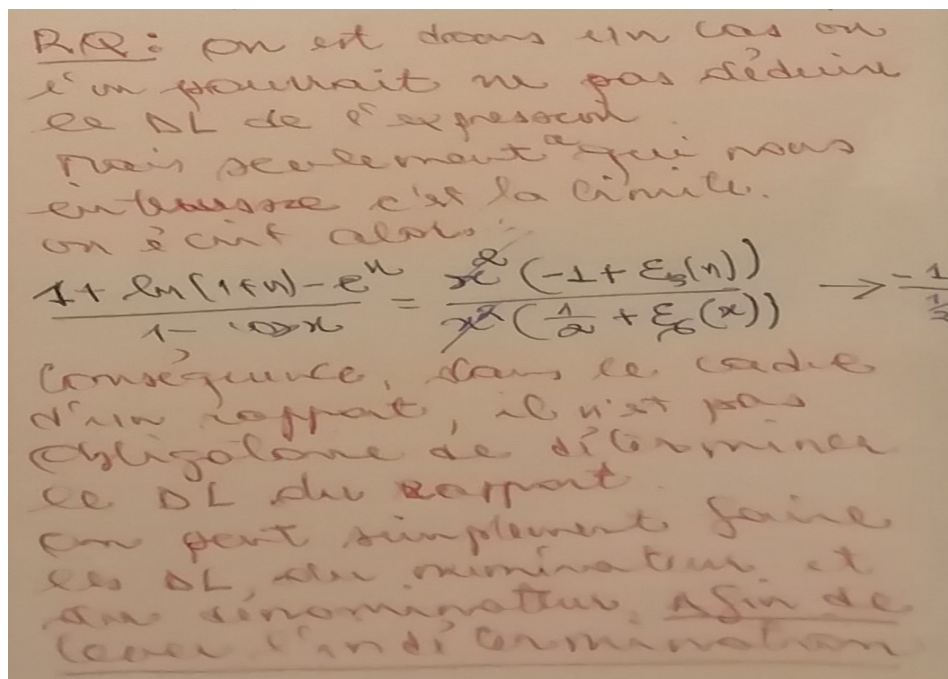 RQ: on est dans un cas ou
l'on pourrait ne pas déduire
le DL de l'expression.
Mais seulement ce qui nous
c'est la limite.
on écrit alors:
1 + ln(1+x) - e^x / 1 - cos x = x^2 (-1 + ε_5(x)) / x^2 (1/2 + ε_6(x)) → -1 / 1/2
Conséquence, dans le cadre
d'un rapport, il n'est pas
obligatoire de déterminer
le DL du rapport.
on peut simplement faire
les DL du numérateur et
du dénominateur. Afin de
lever l'indétermination